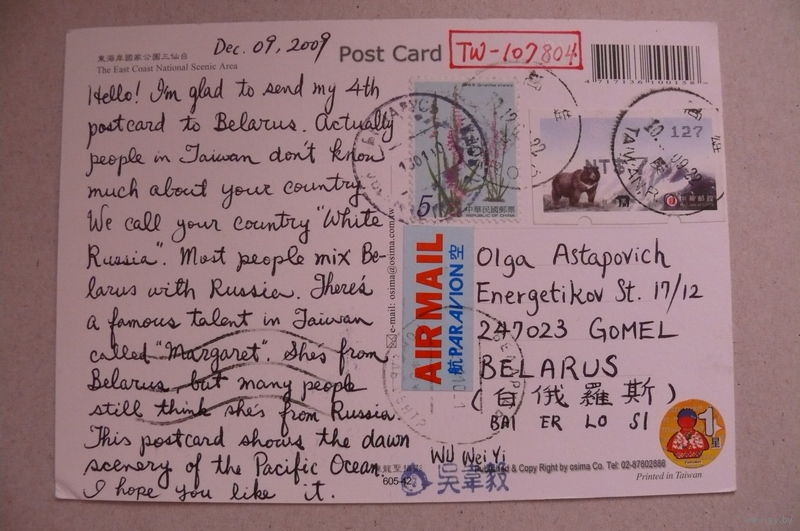 東海岸國家公園三仙台
The East Coast National Scenic Area
Dec. 09, 2009
Post Card
TW-107804
4717136100158
Hello! I'm glad to send my 4th
postcard to Belarus. Actually
people in Taiwan don't know
much about your country.
We call your country "White
Russia". Most people mix Be-
larus with Russia. There's
a famous talent in Taiwan
called "Margaret". She's from
Belarus, but many people
still think she's from Russia.
This postcard shows the dawn
scenery of the Pacific Ocean.
I hope you like it.
5
中華民國郵票
REPUBLIC OF CHINA
127
NT$
中華郵政
TAIWAN
e-mail: osima@osima.com.tw
AIR MAIL
航空 PAR AVION
Olga Astapovich
Energetikov St. 17/12
247023 GOMEL
BELARUS
(白俄羅斯)
BAI ER LO SI
Wu Wei Yi
吳韋毅
605-42
& Copy Right by osima Co. Tel: 02-87802886
Printed in Taiwan
1
星